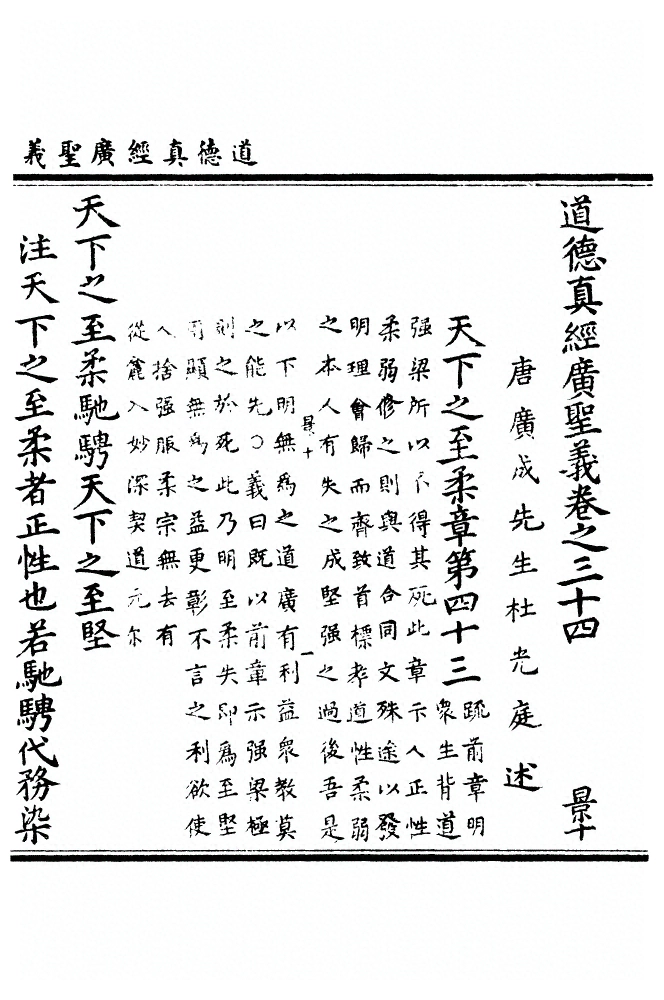 道德真經廣聖義
道德真經廣聖義卷之三十四 景十
唐廣成先生杜光庭述
天下之至柔章第四十三
疏前章明
衆生背道
强梁所以不得其死此章示人正性
柔弱修之則與道合同文殊途以發
明理會歸而齊致首標孝道性柔弱
之本人有失之成堅强之過後吾是
景十 一
以下明無爲之道廣有利益衆教莫
之能先〇義曰既以前章示强梁極
則之於死此乃明至柔失即爲至堅
用顯無爲之益更彰不言之利欲使
人捨强服柔宗無去有
從麁入妙深契道元尔
天下之至柔馳騁天下之至堅
注天下之至柔者正性也若馳騁代務染